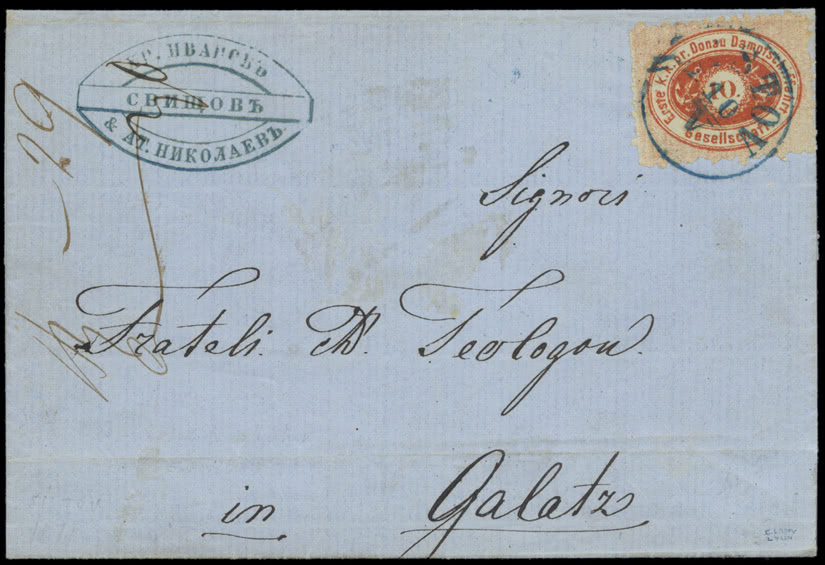 ХР. ИВАНСЪЪ
СВИЩОВЪ
& АТ. НИКОЛАЕВЪ
Erste k.k. pr. Donau Dampfschiffahrt
10.
Gesellschaft
Signori
Frateli Th. Teologou.
in Galatz